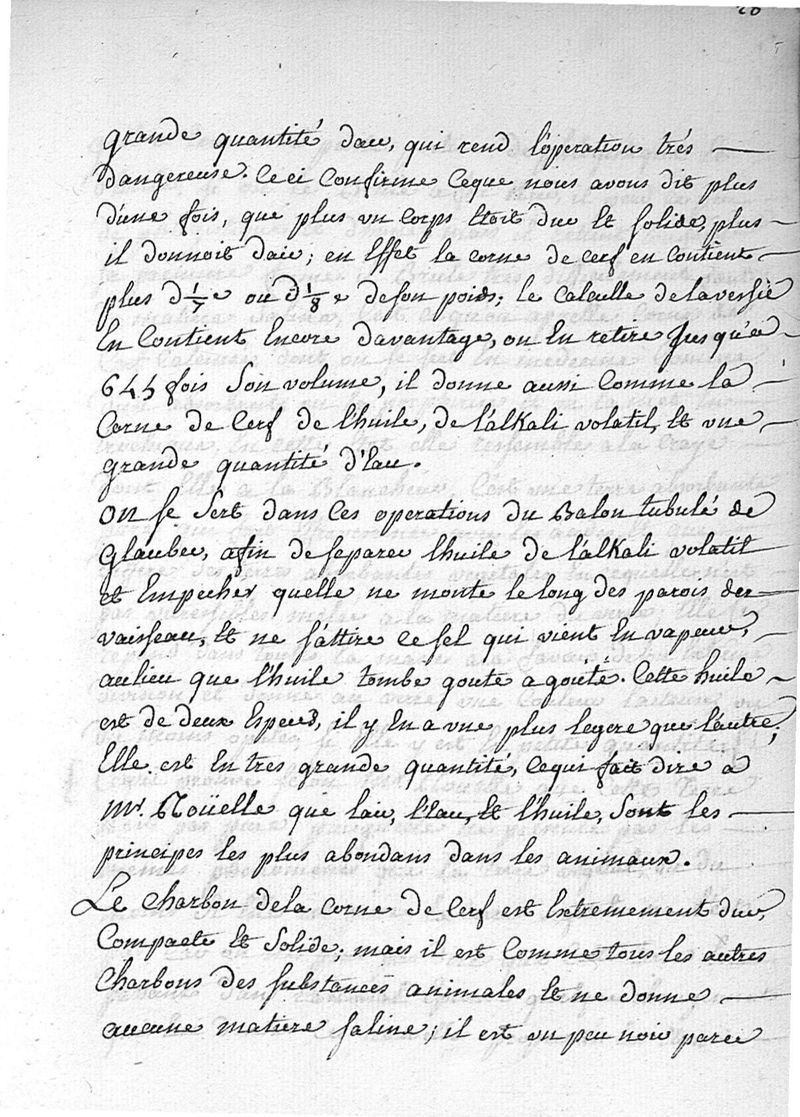 grande quantité dair, qui rend l'opération trés
dangereuse. Ceci Confirme Ceque nous avons dit plus
d'une fois, que plus un Corps étoit dur et solide, plus
il donnoit dair; en Effet la corne de cerf en Contient
plus d'1/7e ou d'1/8e de son poids; le Calculle de la vessie
En Contient Encore davantage, on En retire Jusqu'a
645 fois Son volume, il donne aussi Comme la
Corne de Cerf de l'huile, de l'alkali volatil, et une
grande quantité d'Eau.
On se Sert dans Ces operations du Balon tubulé de
Glauber, afin de separer l'huile de l'alkali volatil
et Empecher quelle ne monte le long des parois des
vaisseau, et ne s'attire ce sel qui vient En vapeur,
aulieu que l'huile tombe goute a goute. Cette huile
est de deux Especes, il y En a une plus legere que l'autre;
Elle est En tres grande quantité, Cequi fait dire a
Mr. Roüelle que lair, l'Eau, et l'huile, Sont les
principes les plus abondans dans les animaux.
Le Charbon dela corne de Cerf est Extremement dur,
Compacte et Solide; mais il est Comme tous les autres
Charbons des substances animales et ne donne
aucune matiere saline; il est un peu noir parce